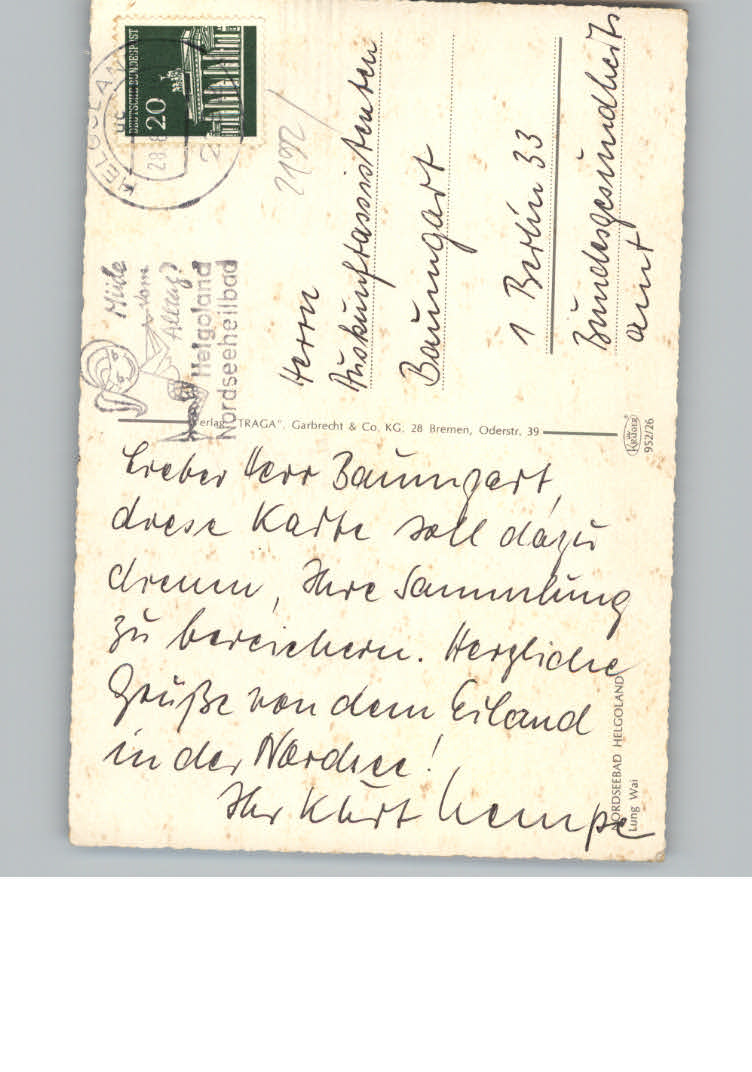 Lieber Herr Baumgart,
diese Karte soll dazu
dienen, Ihre Sammlung
zu bereichern. Herzliche
Grüße von dem Eiland
in der Nordsee!
Ihr Kurt Kempe
Herrn
Auskunftassistenten
Baumgart
1 Berlin 33
Bundesgesundheits
amt
2192/
DEUTSCHE BUNDESPOST
20
HELGOLAND
28.8
2
Müde
vom
Alltag?
Helgoland
Nordseeheilbad
Verlag "TRAGA", Garbrecht & Co. KG. 28 Bremen, Oderstr. 39
Krüger
952/26
NORDSEEBAD HELGOLAND
Lung Wai